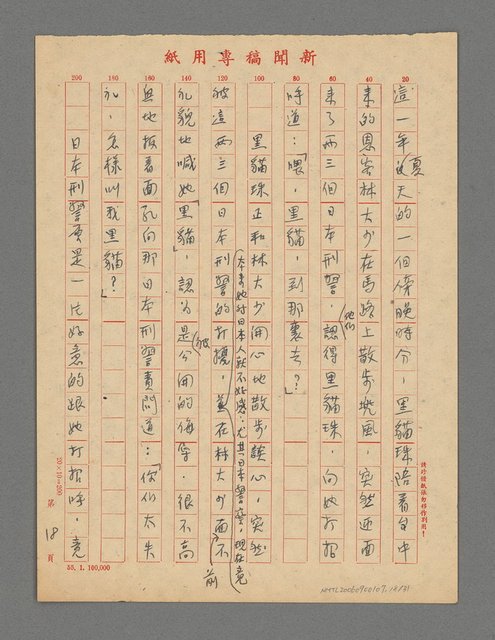 新聞稿專用紙
20
40
60
80
100
120
140
160
180
200
這一年夏天的一個傍晚時分，黑貓珠陪着台中
來的恩客林大少在馬路上散步兜風，突然迎面
來了兩三個日本刑警，他們認得黑貓珠，向她打招
呼道：「喂，黑貓，到那裏去？」
黑貓珠正和林大少開心地散步談心，突然
被這兩三個日本刑警的打擾，
本來她對日本人就不好感，尤其日本警察，現在竟
在林大少面前不
禮貌地喊她「黑貓」，認為是公開的侮辱，很不高
興地板着面孔向那日本刑警責問道：「你們太失
禮，怎樣叫我黑貓？」
日本刑警原是一片好意的跟她打招呼，竟
請珍惜紙張勿移作別用！
20×10=200
第18頁
55.1.100,000
NMTL20060900107,18/31